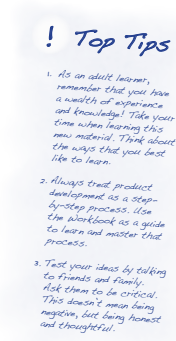 ! Top Tips
1. As an adult learner,
remember that you have
a wealth of experience
and knowledge! Take your
time when learning this
new material. Think about
the ways that you best
like to learn.
2. Always treat product
development as a step-
by-step process. Use
the Workbook as a guide
to learn and master that
process.
3. Test your ideas by talking
to friends and family.
Ask them to be critical.
This doesn't mean being
negative, but being honest
and thoughtful.